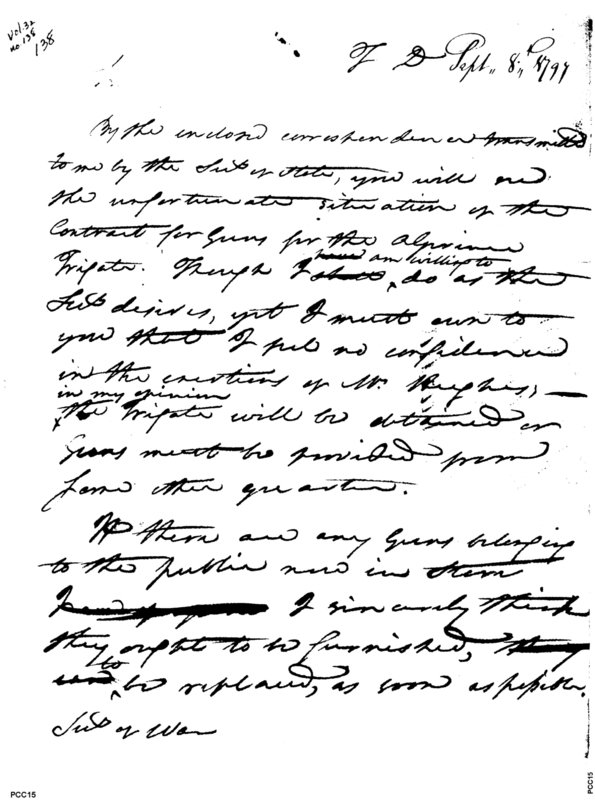 Vol. 32
no 138
138
T D Sept. 8th 1797
By the enclosed correspondence transmitted
to me by the Secy of State, you will see
the unfortunate situation of the
Contract for Guns for the Algerine
Frigate. Though I am willing to do as the
Secy desires, yet I must own to
you that I feel no confidence
in the exertions of Mr. Hughes; —
in my opinion
the Frigate will be detained or
Guns must be provided from
some other quarter.
If there are any Guns belonging
to the public now in store
I sincerely think
they ought to be furnished,
to be replaced, as soon as possible.
Secy of War
PCC15
PCC15